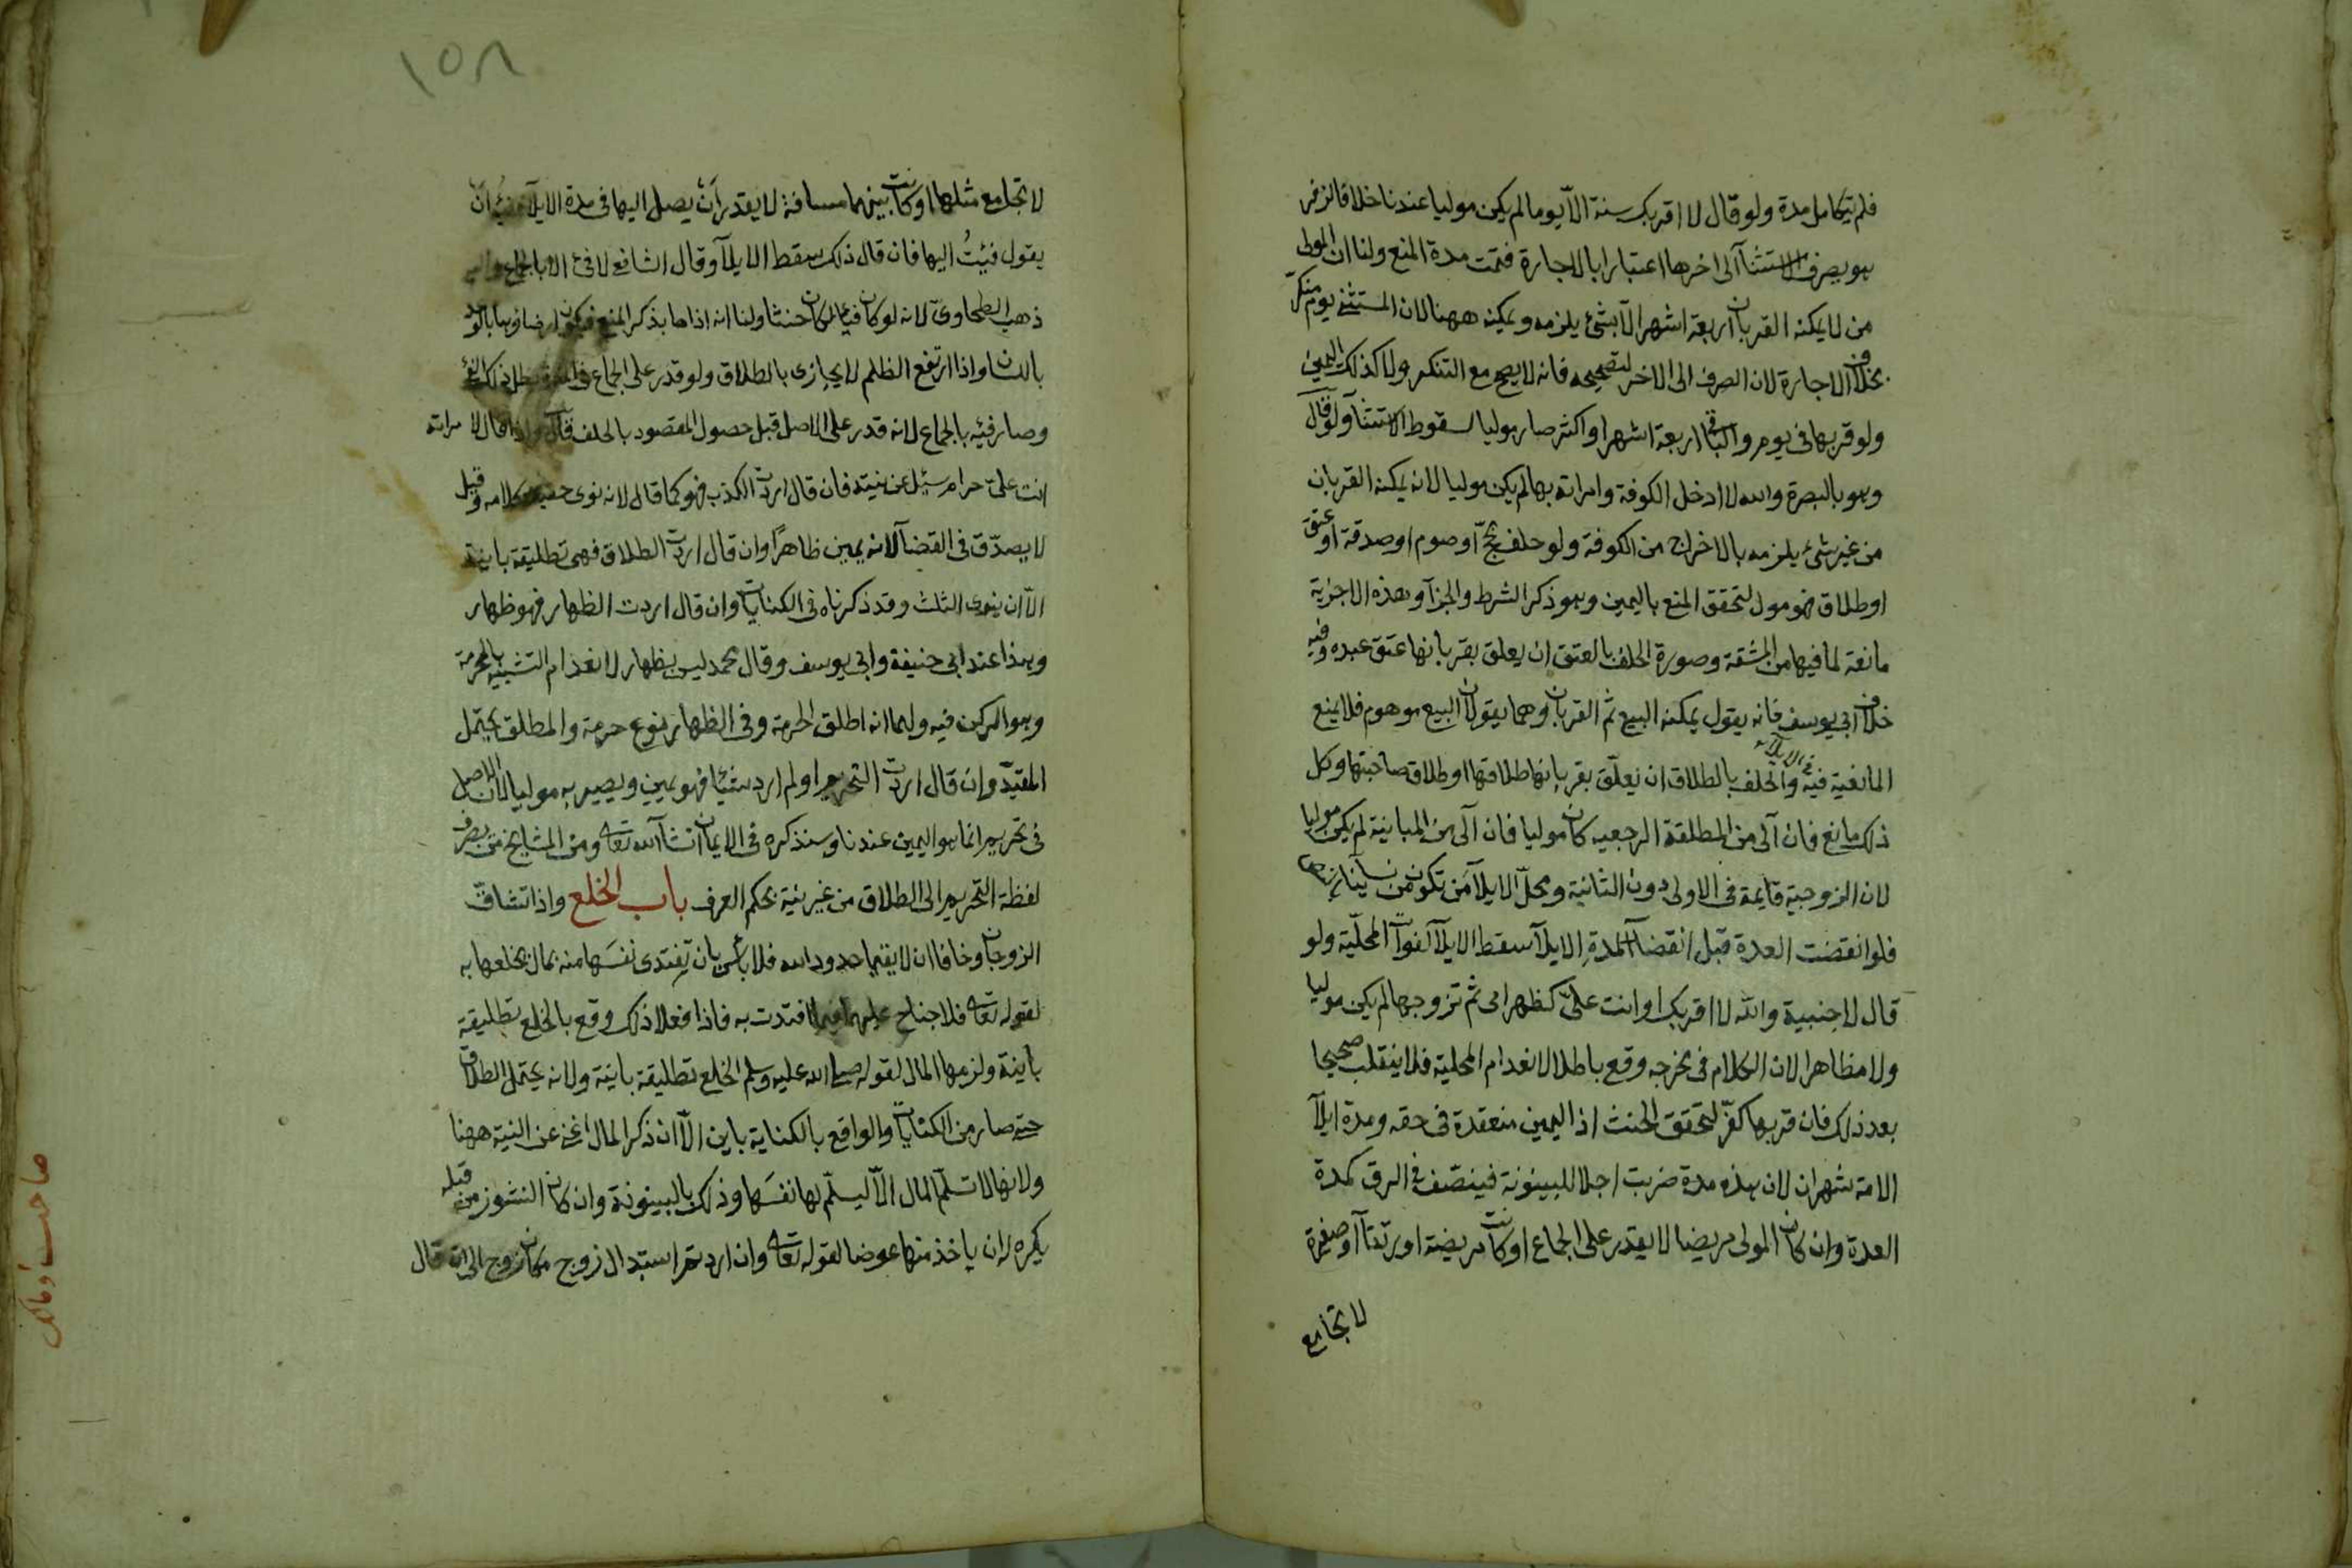 فلم يتكامل مدة ولو قال لا اقربك سنة الّا يوما لم يكن موليا عندنا خلافا لزفر
هو يصرف الاستثنآ الى اخرها اعتبارا بالاجارة فتمت مدة المنع ولنا ان المولى
من لا يمكنه القربان اربعة اشهر الّا بشئ يلزمه ويمكنه ههنا لان المستثنى يوم منكر
بخلاف الاجارة لان الصرف الى الاخر لتصحيحه فانه لا يصح مع التنكير ولا كذلك اليمين
ولو قربها فى يوم والباقى اربعة اشهر او اكثر صار موليا لسقوط الاستثنآ ولو قال
وهو بالبصرة والله لا ادخل الكوفة وامراته بها لم يكن موليا لانه يمكنه القربان
من غير شئ يلزمه بالاخراج من الكوفة ولو حلف بحجّ او صوم او صدقة او عتق
او طلاق فهو مول لتحقق المنع باليمين وهو ذكر الشرط والجزآ وهذه الاجزية
مانعة لما فيها من المشقة وصورة الحلف بالعتق ان يعلق بقربانها عتق عبده وفيه
خلاف ابى يوسف فانه يقول يمكنه البيع ثم القربان وهما يقولان البيع موهوم فلا يمنع
المانعية فيه والحلف بالطلاق ان يعلّق بقربانها طلاقها او طلاق صاحبتها وكل
فى الايلاء
ذلك مانع فان آلى من المطلقة الرجعية كان موليا فان آلى من المباينة لم يكن موليا
لان الزوجية قايمة فى الاولى دون الثانية ومحلّ الايلآ من تكون من نسآينا بالنص
فلو انقضت العدة قبل انقضآ مدة الايلآ سقط الايلآ لفوات المحلّية ولو
قال لاجنبية والله لا اقربك او انت علىّ كظهر امى ثم تزوجها لم يكن موليا
ولا مظاهرا لان الكلام فى مخرجه وقع باطلا لانعدام المحلية فلا ينقلب صحيحا
بعد ذلك فان قربها كفّر لتحقق الحنث اذ اليمين منعقدة فى حقه ومدة ايلآ
الامة شهران لان هذه مدة ضربت اجلا للبينونة فينصّف فى الرق كمدة
العدة وان كان المولى مريضا لا يقدر على الجماع او كانت مريضة او رتقآ او صغيرة
لا تجامع
١٥٨
لا تجامع مثلها او كانت بينهما مسافة لا يقدر ان يصل اليها فى مدة الايلآ ففيئه ان
يقول فيئتُ اليها فان قال ذلك سقط الايلآ وقال الشافعى لا فئ الا بالجماع واليه
ذهب الطحاوىّ لانه لو كان فيئا لكان حنثا ولنا انه اذاها بذكر المنع فيكون ارضاوها بالوعد
باللسان واذا ارتفع الظلم لا يجازى بالطلاق ولو قدر على الجماع فى المدة بطل ذلك الفئ
وصار فيئه بالجماع لانه قدر على الاصل قبل حصول المقصود بالحلف قال واذا قال لامراته
انت علىّ حرام سئل عن نيته فان قال اردت الكذب فهو كما قال لانه نوى حقيقة كلامه وقيل
لا يصدّق فى القضآ لانه يمين ظاهرًا وان قال اردت الطلاق فهى تطليقة باينة
الّا ان ينوى الثلث وقد ذكرناه فى الكنايات وان قال اردت الظهار فهو ظهار
وهذا عند ابى حنيفة وابى يوسف وقال محمد ليس بظهار لانعدام التشبيه بالمحرمة
وهو الركن فيه ولهما انه اطلق الحرمة وفى الظهار نوع حرمة والمطلق يحتمل
المقيّد وان قال اردت التحريم او لم ارد شيئا فهو يمين ويصير به موليا لان الاصل
فى تحريم انما هو اليمين عندنا وسنذكره فى الايمان ان شآ الله تعالى ومن المشايخ من يصرف
لفظة التحريم الى الطلاق من غير نية بحكم العرف باب الخلع واذا تشاقّ
الزوجان وخافا ان لا يقيما حدود الله فلا بأس بان تفتدى نفسَها منه بمال يخلعها به
لقوله تعالى فلا جناح عليهما فيما افتدت به فاذا فعلا ذلك وقع بالخلع تطليقة
باينة ولزمها المال لقوله صلى الله عليه وسلم الخلع تطليقة باينة ولانه يحتمل الطلاق
حتى صار من الكنايات والواقع بالكناية باين الّا ان ذكر المال اغنى عن النية ههنا
ولانها لا تسلّم المال الّا ليسلّم لها نفسَها وذلك بالبينونة وان كان النشوز من قبله
يكره له ان ياخذ منها عوضا لقوله تعالى وان اردتم استبدال زوج مكان زوج الى ان قال